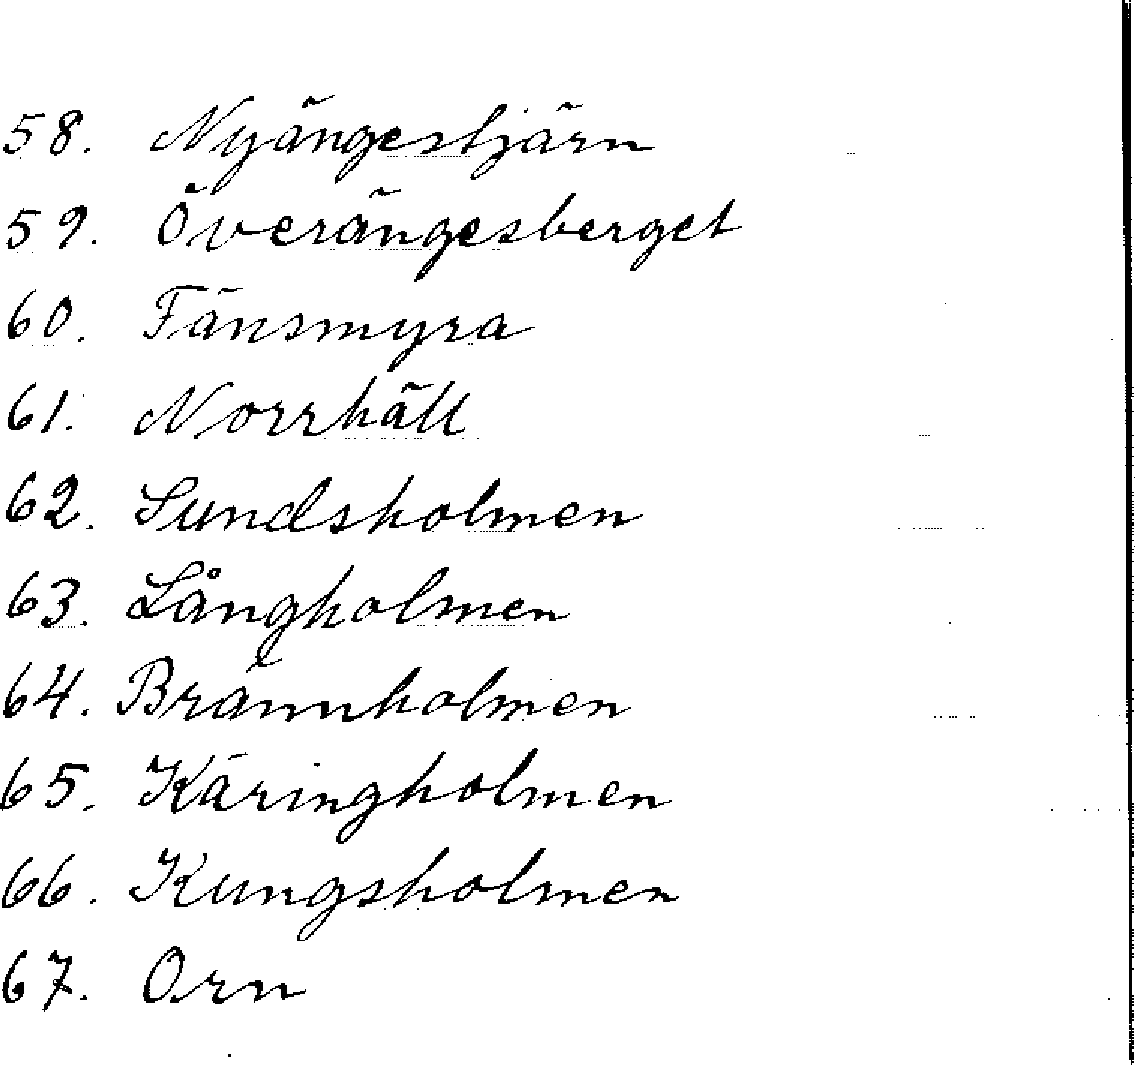 58. Nyängestjärn
59. Överängesberget
60. Fänsmyra
61. Norrhäll
62. Sundsholmen
63. Långholmen
64. Brännholmen
65. Käringholmen
66. Kungsholmen
67. Orn